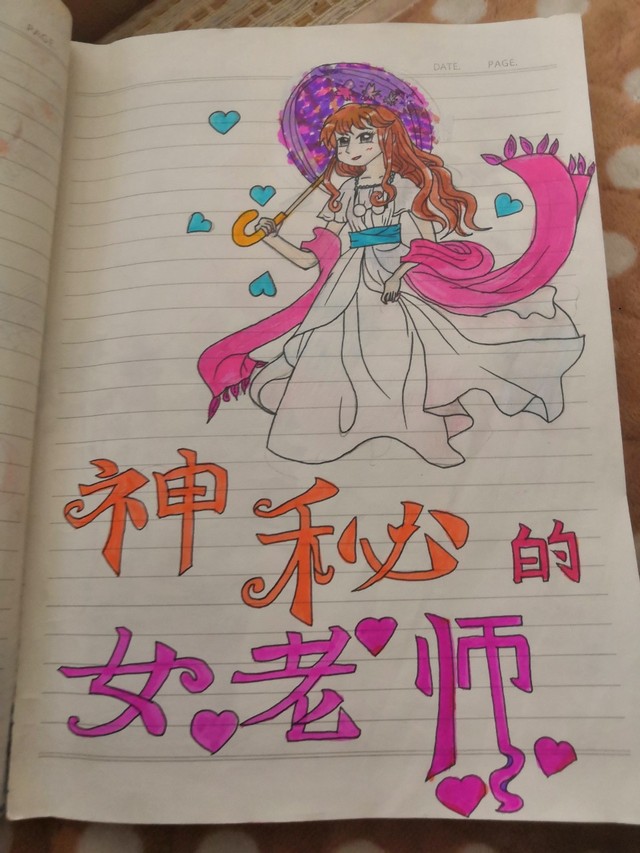 DATE. PAGE.
神秘的
女老师